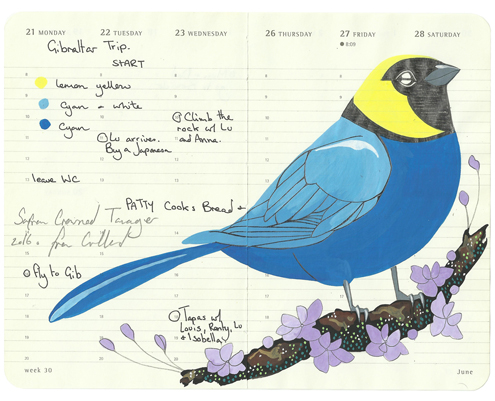 21 MONDAY
22 TUESDAY
23 WEDNESDAY
26 THURSDAY
27 FRIDAY
28 SATURDAY
8:09
Gibraltar Trip.
START
lemon yellow
Cyan + white
Cyan
Lu arrives.
Buy a Japanese
Climb the
rock w/ Lu
and Anne.
leave WC
PATTY Cooks Bread +
Crowned Tanager
2016.
Fly to Gib
Tapas w/
Louis, Lu
+ Isabella
week 30
June